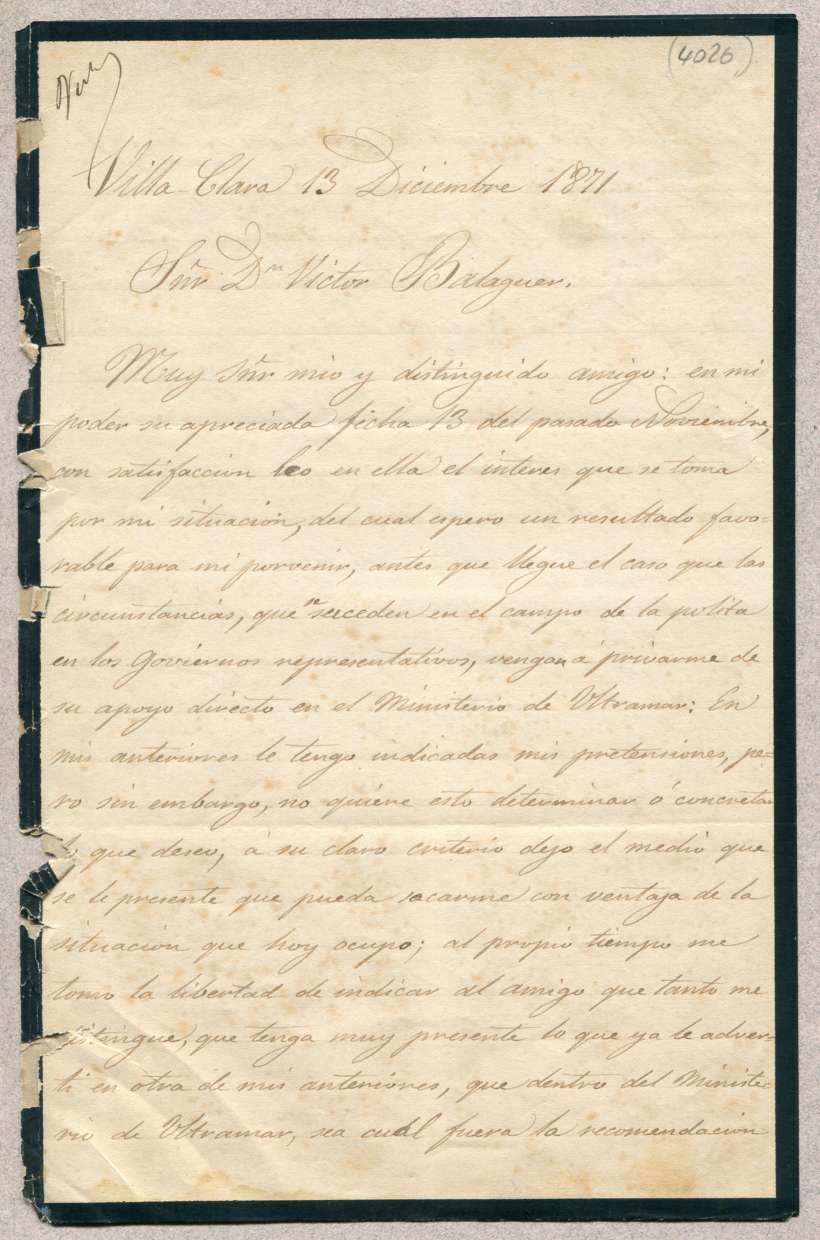 (4026)
Villa-Clara 13 Diciembre 1871
Sñr. Dn Victor Balaguer.
Muy Sñr mio y distinguido amigo: en mi
poder su apreciada ficha 13 del pasado Noviembre,
con satisfaccion leo en ella el interes que se toma
por mi situación, del cual espero un resultado favo-
rable para mi porvenir, antes que llegue el caso que las
circunstancias, que se suceden en el campo de la polita
en los Goviernos representativos, vengan á privarme de
su apoyo directo en el Ministerio de Ultramar: En
mis anteriores le tengo indicadas mis pretensiones, pe-
ro sin embargo, no quiere esto determinar ó concretar
lo que deseo, á su claro criterio dejo el medio que
se le presente que pueda sacarme con ventaja de la
situación que hoy ocupo; al propio tiempo me
tomo la libertad de indicar al amigo que tanto me
distingue, que tenga muy presente lo que ya le adver-
ti en otra de mis anteriores, que dentro del Ministe-
rio de Ultramar, sea cuál fuera la recomendación